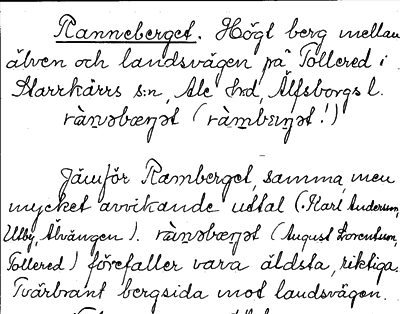 Ranneberget. Högt berg mellan
älven och landsvägen på Tollered i
Starrkärrs s:n, Ale hd, Älfsborgs l.
rànəbæŋət (ràmbæŋət!)
Jämför Ramberget, samma, men
mycket avvikande uttal (Karl Anderson,
Utby, Älvängen). rànəbæŋət (August Lorentsson,
Tollered) förefaller vara äldsta, riktiga.
Tvärbrant bergsida mot landsvägen.